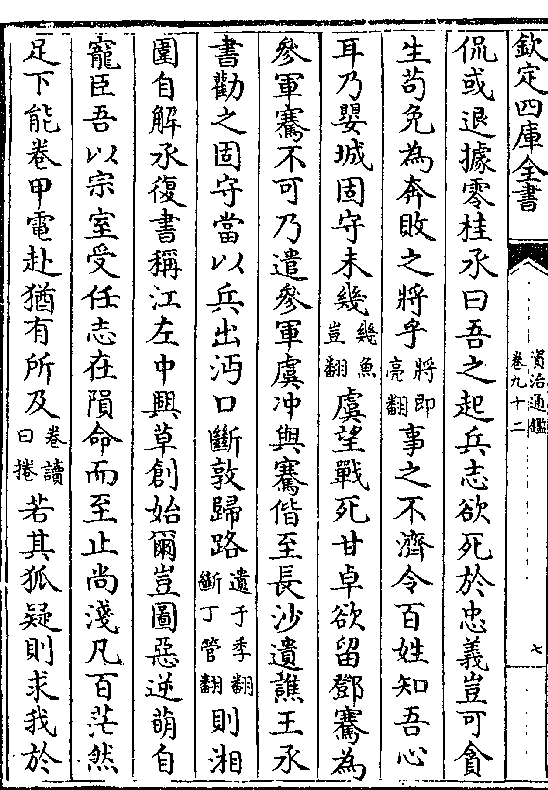 欽定四庫全書
資治通鑑
卷九十二
七
侃或退據零桂承曰吾之起兵志欲死於忠義豈可貪
生苟免為奔敗之將乎將即亮翻事之不濟令百姓知吾心
耳乃嬰城固守未幾幾魚豈翻虞望戰死甘卓欲留鄧騫為
參軍騫不可乃遣參軍虞冲與騫偕至長沙遺譙王承
書勸之固守當以兵出沔口斷敦歸路遺于季翻斷丁管翻則湘
圍自解承復書稱江左中興草創始爾豈圖惡逆萌自
寵臣吾以宗室受任志在隕命而至止尚淺凡百茫然
足下能卷甲電赴猶有所及卷讀曰捲若其狐疑則求我於